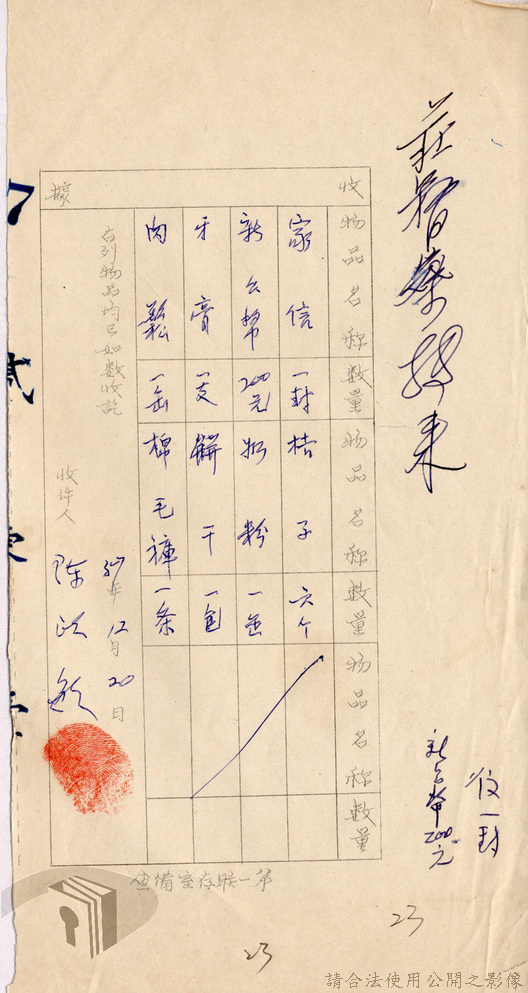 收
據
物品名称
数量
物品名称
数量
物品名称
数量
家信
一封
桔子
六个
新台幣
200元
奶粉
一盒
牙膏
一支
餅干
一包
肉鬆
一缶
棉毛褲
一条
右列物品均已如数收訖
年12月20日
收件人
陳
第一联存室備查
一封
新台幣200元
23
23
請合法使用公開之影像